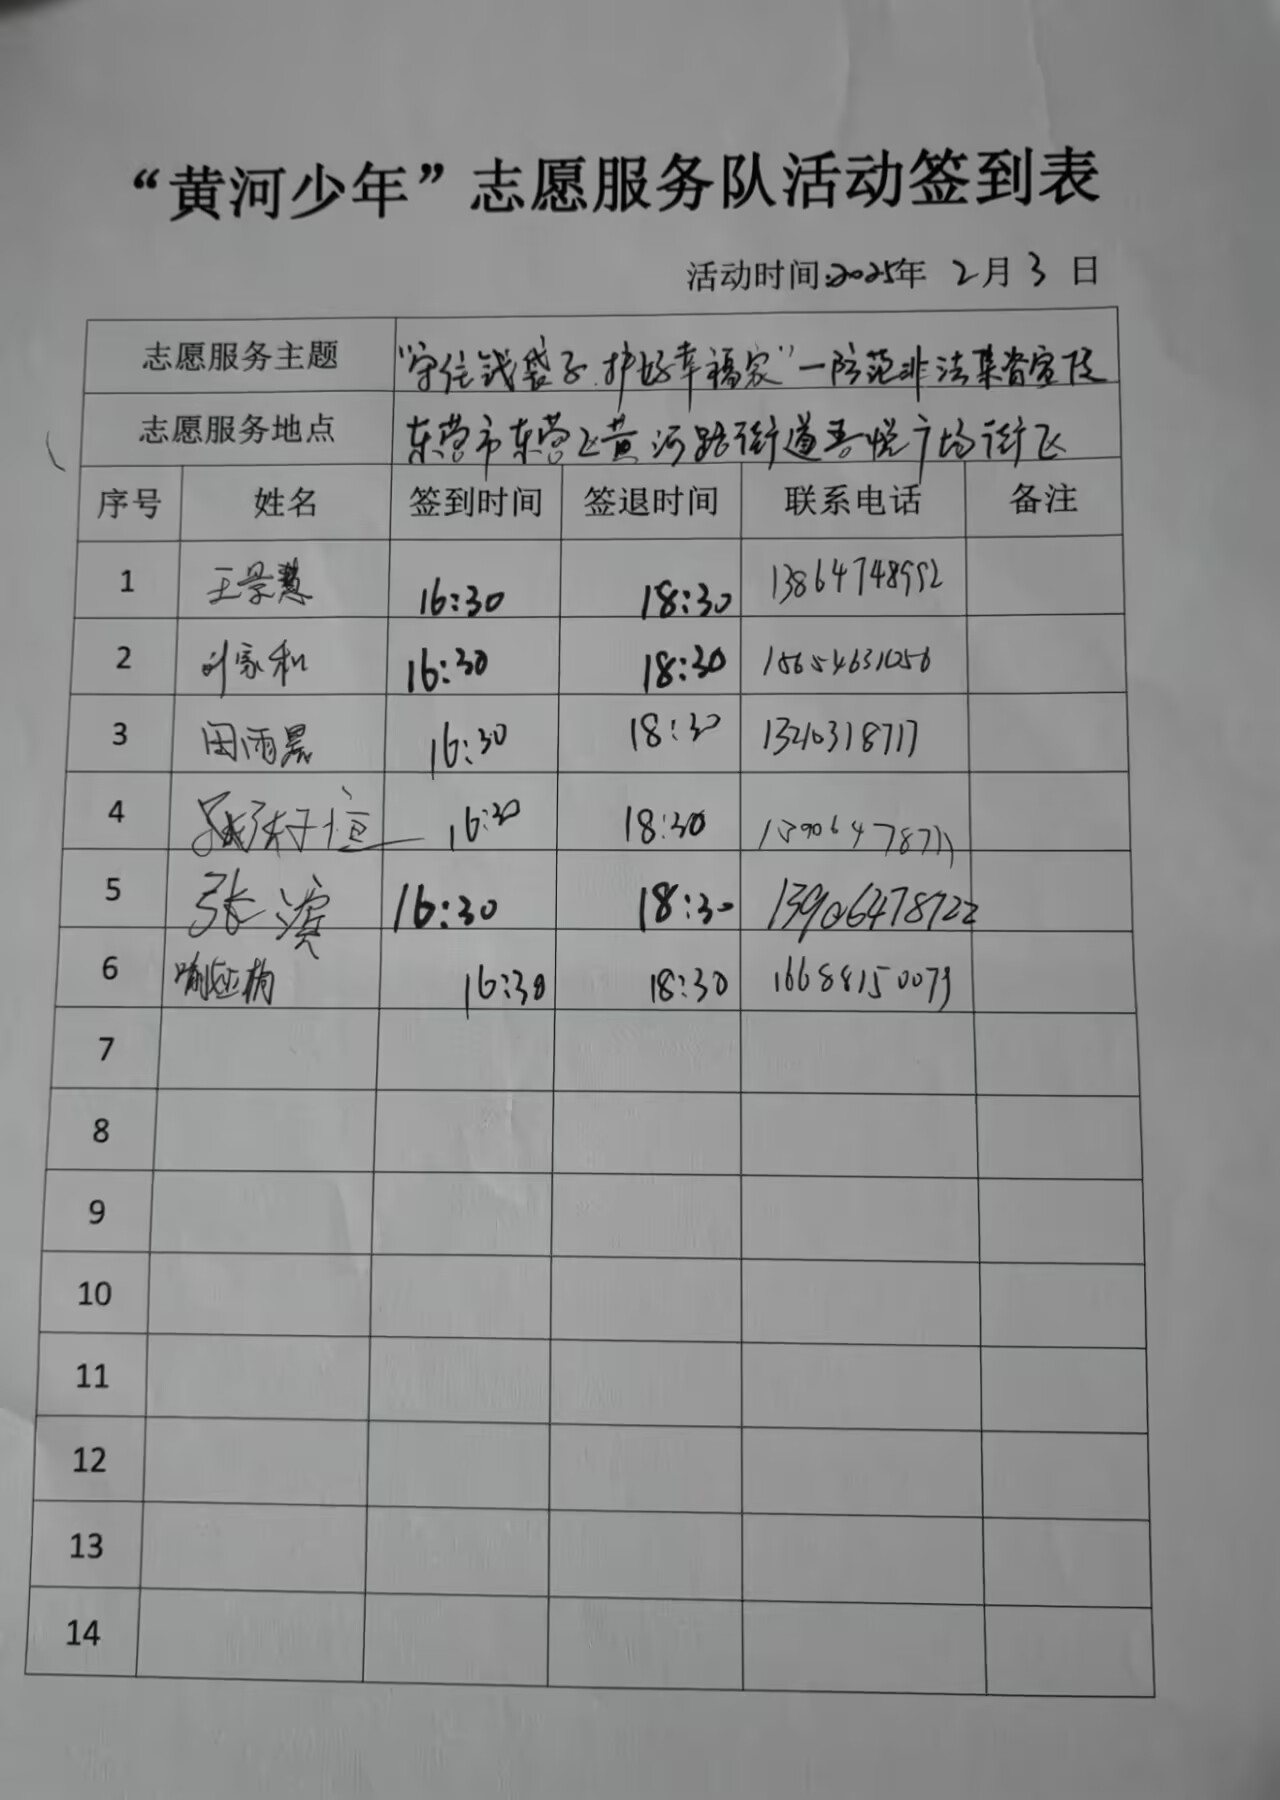 “黄河少年”志愿服务队活动签到表
活动时间:2025年 2月 3 日
志愿服务主题 “守住钱袋子.护好幸福家”一防范非法集资宣传
志愿服务地点 东营市东营区黄河路街道吾悦广场街区
序号 姓名 签到时间 签退时间 联系电话 备注
1 王景慧 16:30 18:30 13864748992
2 刘家和 16:30 18:30 15654631056
3 田雨晨 16:30 18:30 13210318717
4 16:30 18:30
5 张滨 16:30 18:30 13906478722
6 16:30 18:30 16688150079
7
8
9
10
11
12
13
14